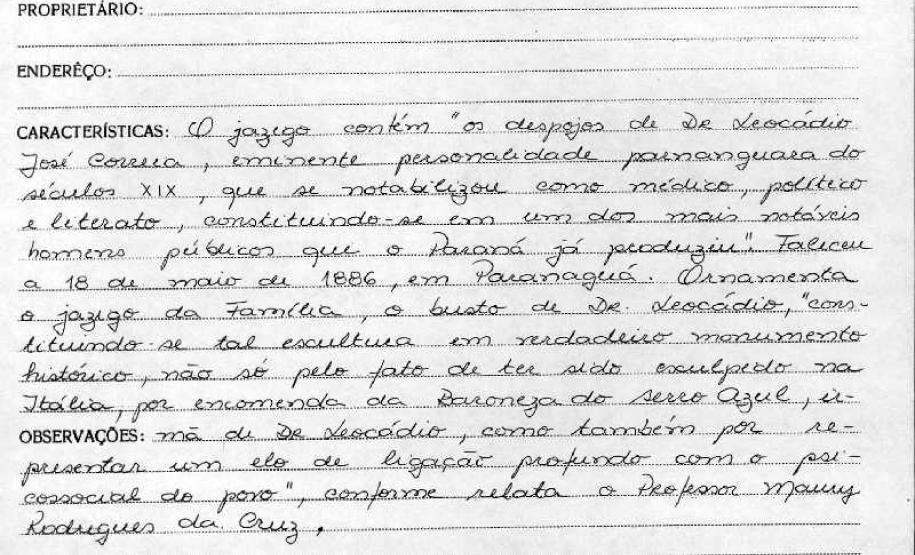 PROPRIETÁRIO:
ENDERÊÇO:
CARACTERÍSTICAS: O jazigo contém "os despojos de Dr Leocádio
José Correia, eminente personalidade parnanguara do
séculos XIX, que se notabilizou como médico, político
e literato, constituindo-se em um dos mais notáveis
homens públicos que o Paraná já produziu". Faleceu
a 18 de maio de 1886, em Paranaguá. Ornamenta
o jazigo da Família, o busto de Dr. Leocádio, "cons-
tituindo-se tal escultura em verdadeiro monumento
histórico, não só pelo fato de ter sido esculpido na
Itália, por encomenda da Baroneza do Serro Azul, ir-
OBSERVAÇÕES: mã de Dr Leocádio, como também por re-
presentar um elo de ligação profundo com o psi-
cossocial do povo", conforme relata o Professor Maury
Rodrigues da Cruz.